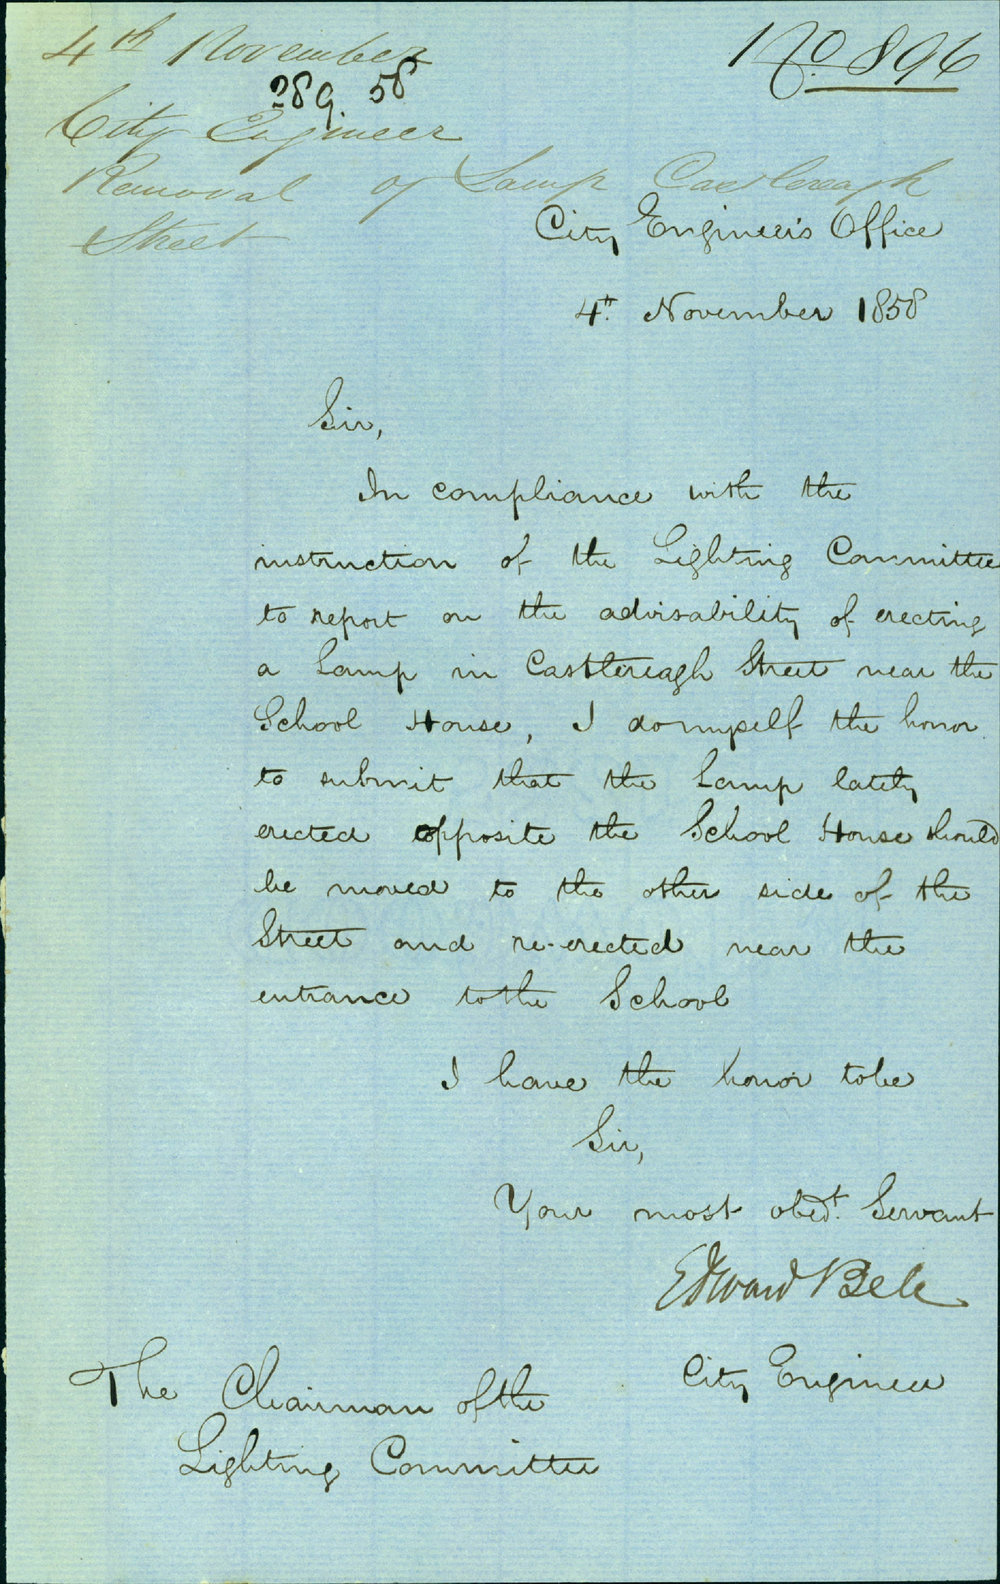 4th November
No. 896
289. 58
City Engineer
Removal of Lamp Castlereagh
Street
City Engineer's Office
4th. November 1858
Sir,
In compliance with the
instruction of the Lighting Committee
to report on the advisability of erecting
a Lamp in Castlereagh Street near the
School House, I do myself the honor
to submit that the Lamp lately
erected opposite the School House should
be moved to the other side of the
Street and re-erected near the
entrance to the School
I have the honor to be
Sir,
Your most obedt. Servant
Edward Bell
City Engineer
The Chairman of the
Lighting Committee